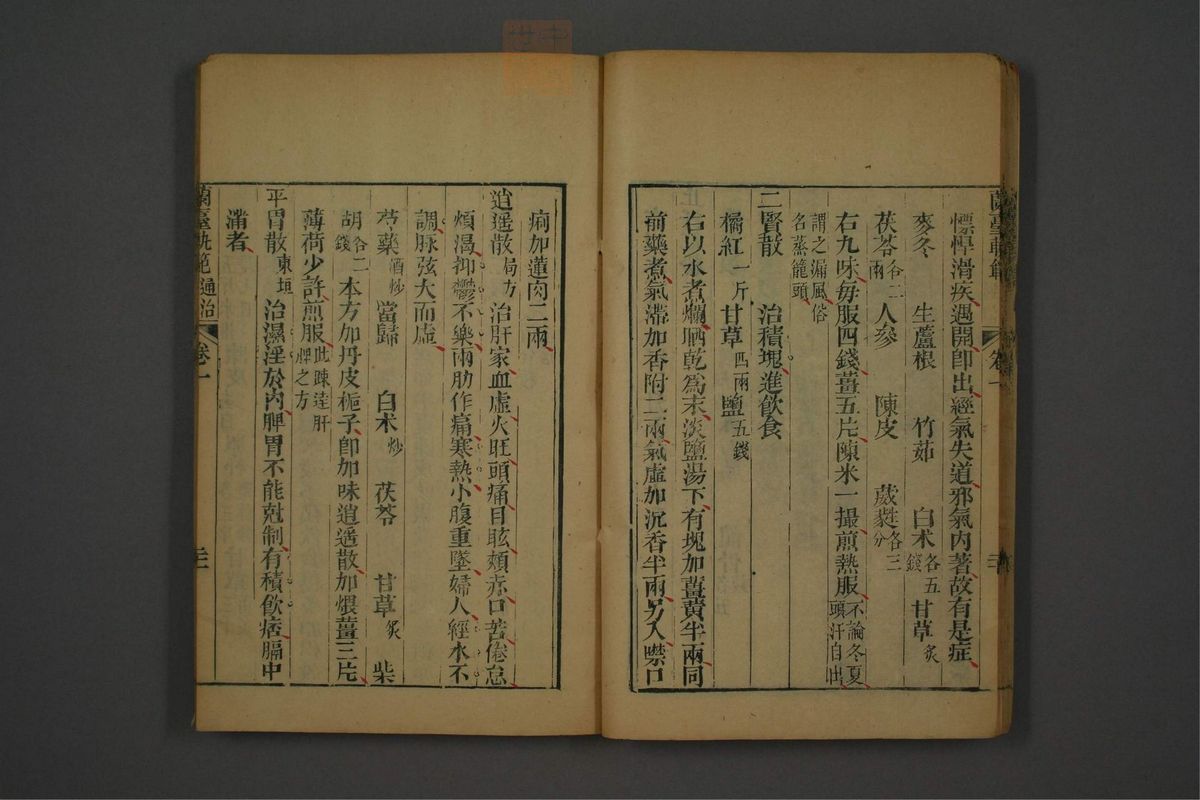 慓悍滑疾遇開卽出經氣失道邪氣內著故有是症
麥冬 生蘆根 竹茹 白术各五錢 甘草炙
茯苓各二兩 人參 陳皮 葳蕤各三分
右九味每服四錢薑五片陳米一撮煎熱服不論冬夏頭汗自出
謂之漏風俗名蒸籠頭
二賢散 治積塊進飲食
橘紅一斤 甘草四兩 鹽五錢
右以水煮爛晒乾為末淡鹽湯下有塊加薑黃半兩同
前藥煮氣滯加香附二兩氣虛加沉香半兩另入噤口
蘭臺軌範 卷一
痢加蓮肉二兩
逍遙散局方 治肝家血虛火旺頭痛目眩頰赤口苦倦怠
煩渴抑鬱不樂兩肋作痛寒熱小腹重墜婦人經水不
調脉弦大而虛
芍藥酒炒 當歸 白术炒 茯苓 甘草炙 柴
胡各二錢 本方加丹皮梔子卽加味逍遙散加煨薑三片
薄荷少許煎服此疎逹肝脾之方
平胃散東垣 治濕淫於內脾胃不能尅制有積飲痞膈中
滿者
蘭臺軌範通治 卷一